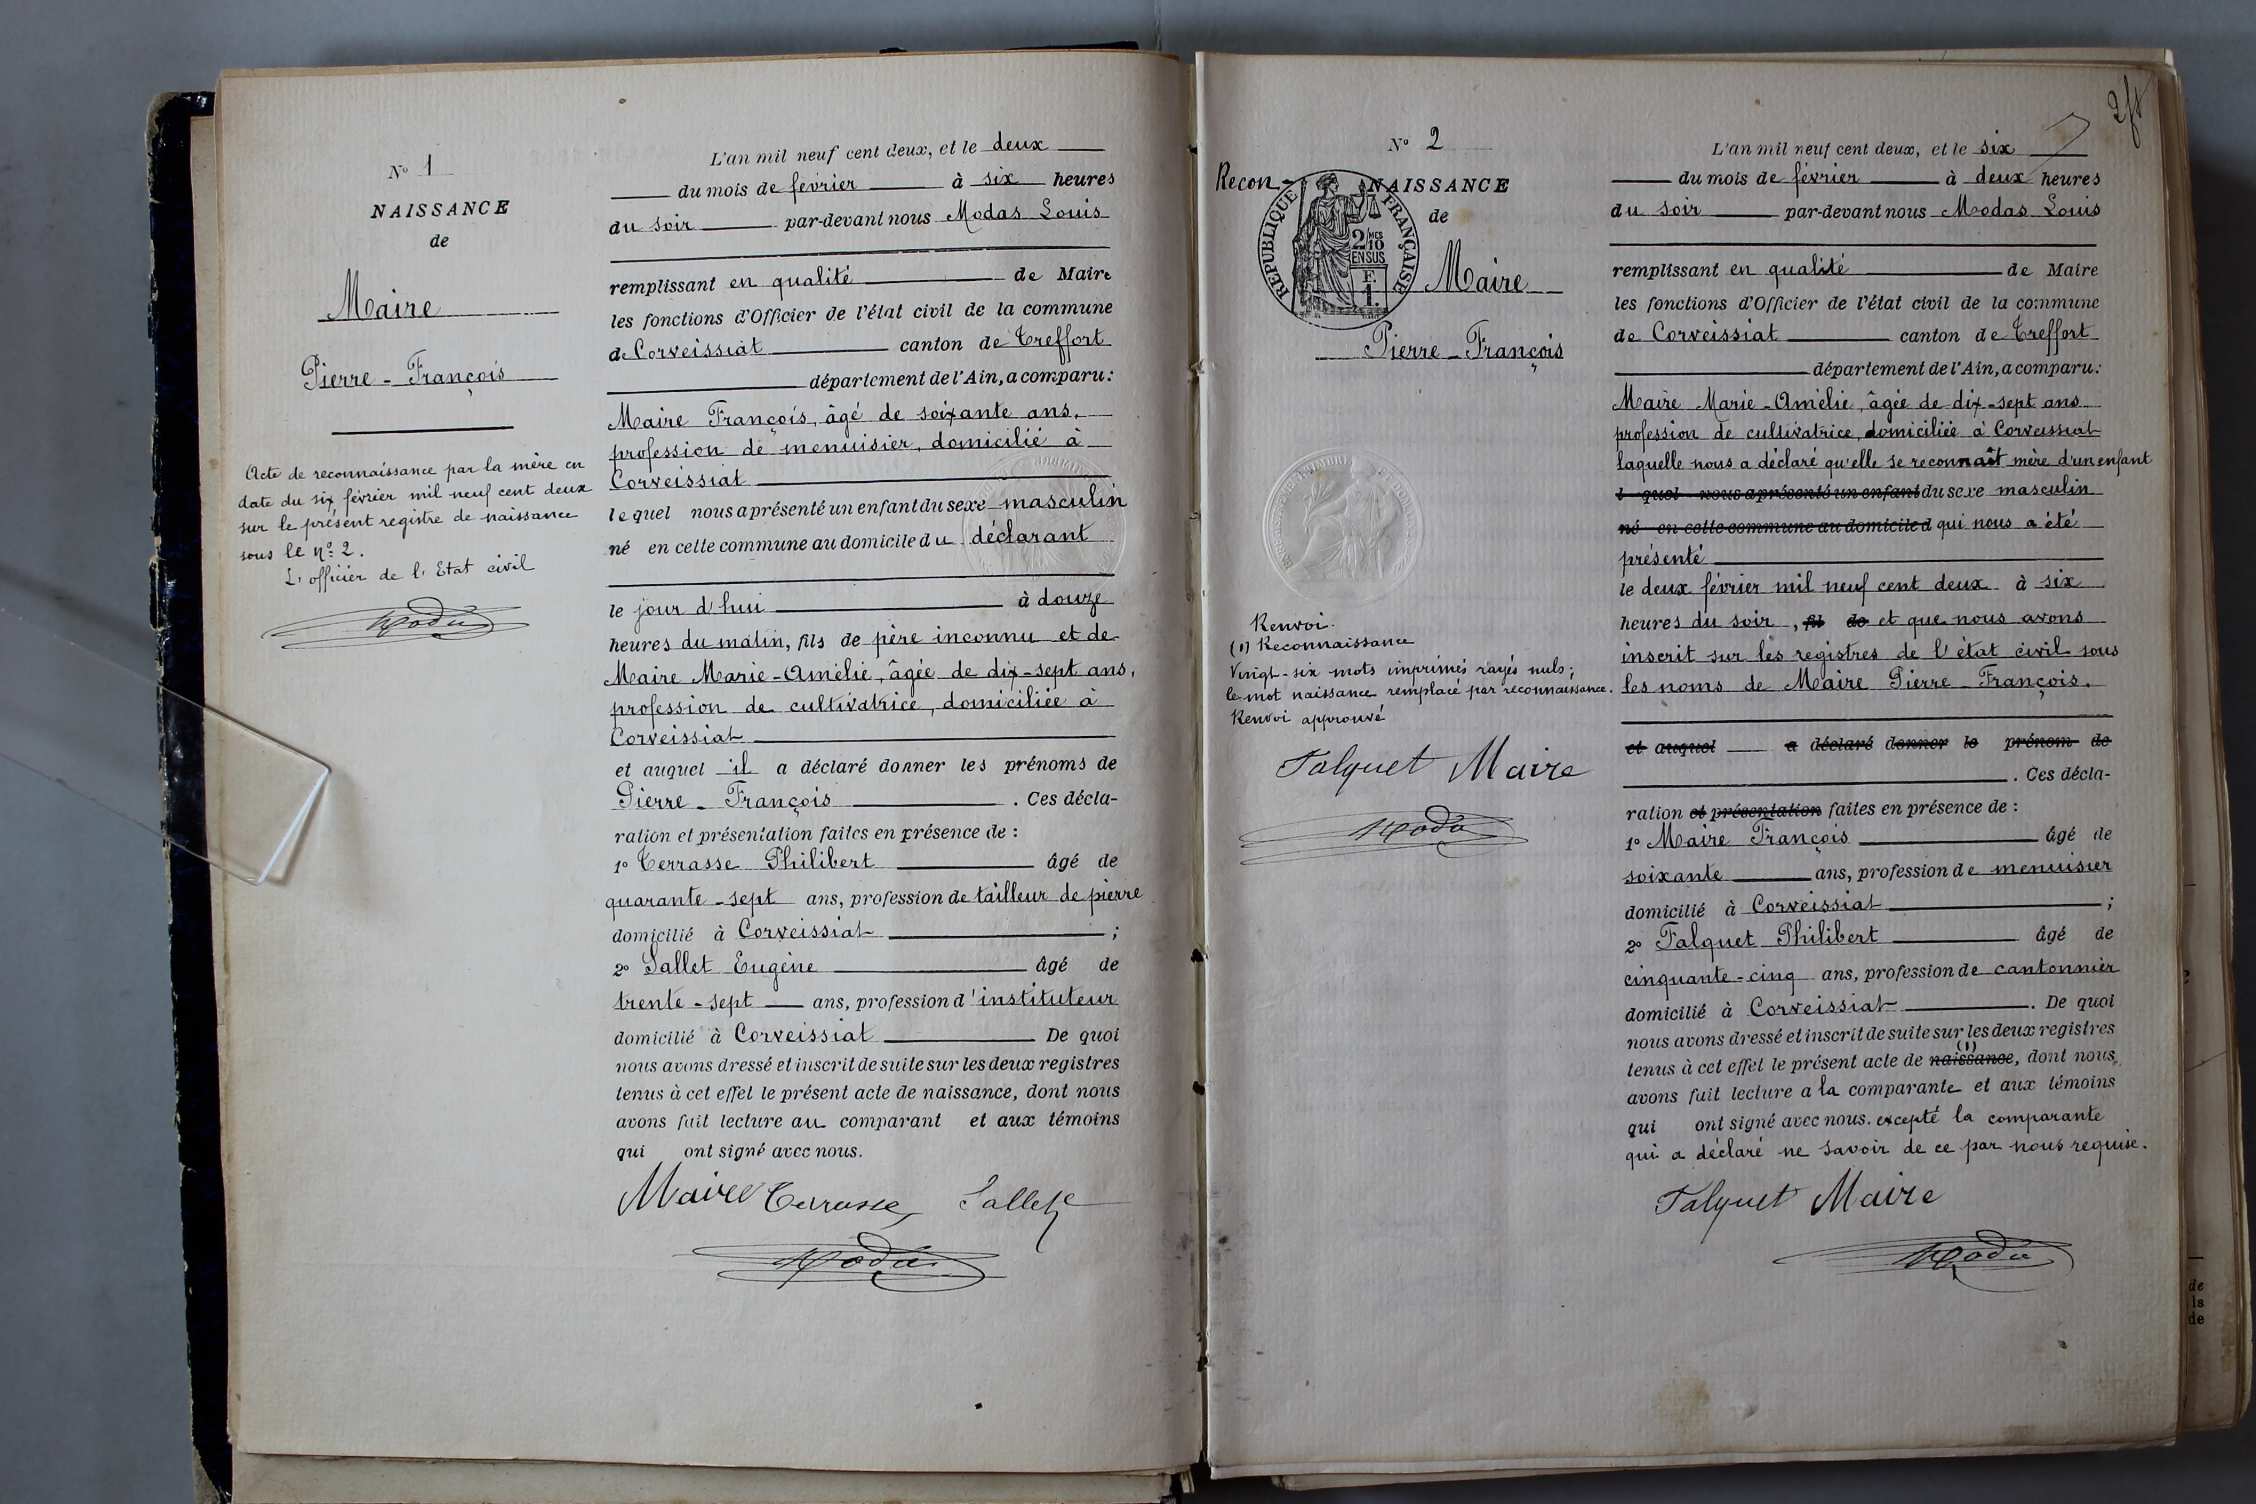 N° 1
NAISSANCE
de
Maire
Pierre - François
Acte de reconnaissance par la mère en
date du six février mil neuf cent deux
sur le présent registre de naissance
sous le n° 2.
L'officier de l'Etat civil
L'an mil neuf cent deux, et le deux
du mois de février à six heures
du soir par-devant nous Modas Louis
remplissant en qualité de Maire
les fonctions d'Officier de l'état civil de la commune
de Corveissiat canton de Treffort
département de l'Ain, a comparu:
Maire François, âgé de soixante ans,
profession de menuisier, domicilié à
Corveissiat
lequel nous a présenté un enfant du sexe masculin
né en cette commune au domicile du déclarant
le jour d'hui à douze
heures du matin, fils de père inconnu et de
Maire Marie-Amélie, âgée de dix-sept ans,
profession de cultivatrice, domiciliée à
Corveissiat
et auquel il a déclaré donner les prénoms de
Pierre - François . Ces décla-
ration et présentation faites en présence de :
1° Terrasse Philibert âgé de
quarante-sept ans, profession de tailleur de pierre
domicilié à Corveissiat ;
2° Sallet Eugène âgé de
trente-sept ans, profession d'instituteur
domicilié à Corveissiat De quoi
nous avons dressé et inscrit de suite sur les deux registres
tenus à cet effet le présent acte de naissance, dont nous
avons fait lecture au comparant et aux témoins
qui ont signé avec nous.
Maire Terrasse Sallet
Modas
N° 2
Recon-
NAISSANCE
de
RÉPUBLIQUE FRANÇAISE
2/10
MES
EN SUS
F.
1.
Maire
Pierre - François
Renvoi.
(1) Reconnaissance
Vingt-six mots imprimés rayés nuls;
le mot naissance remplacé par reconnaissance.
Renvoi approuvé
Falquet Maire
Modas
2
L'an mil neuf cent deux, et le six
du mois de février à deux heures
du soir par-devant nous Modas Louis
remplissant en qualité de Maire
les fonctions d'Officier de l'état civil de la commune
de Corveissiat canton de Treffort
département de l'Ain, a comparu:
Maire Marie-Amélie, âgée de dix-sept ans
profession de cultivatrice, domiciliée à Corveissiat
laquelle nous a déclaré qu'elle se reconnaît mère d'un enfant
l quel nous a présenté un enfant du sexe masculin
né en cette commune au domicile d qui nous a été
présenté
le deux février mil neuf cent deux à six
heures du soir, fil de et que nous avons
inscrit sur les registres de l'état civil sous
les noms de Maire Pierre-François.
et auquel a déclaré donner le prénom de
. Ces décla-
ration et présentation faites en présence de :
1° Maire François âgé de
soixante ans, profession de menuisier
domicilié à Corveissiat ;
2° Falquet Philibert âgé de
cinquante-cinq ans, profession de cantonnier
domicilié à Corveissiat . De quoi
nous avons dressé et inscrit de suite sur les deux registres
(1)
tenus à cet effet le présent acte de naissance, dont nous
avons fait lecture a la comparante et aux témoins
qui ont signé avec nous. excepté la comparante
qui a déclaré ne savoir de ce par nous requise.
Falquet Maire
Modas
de
ls
de